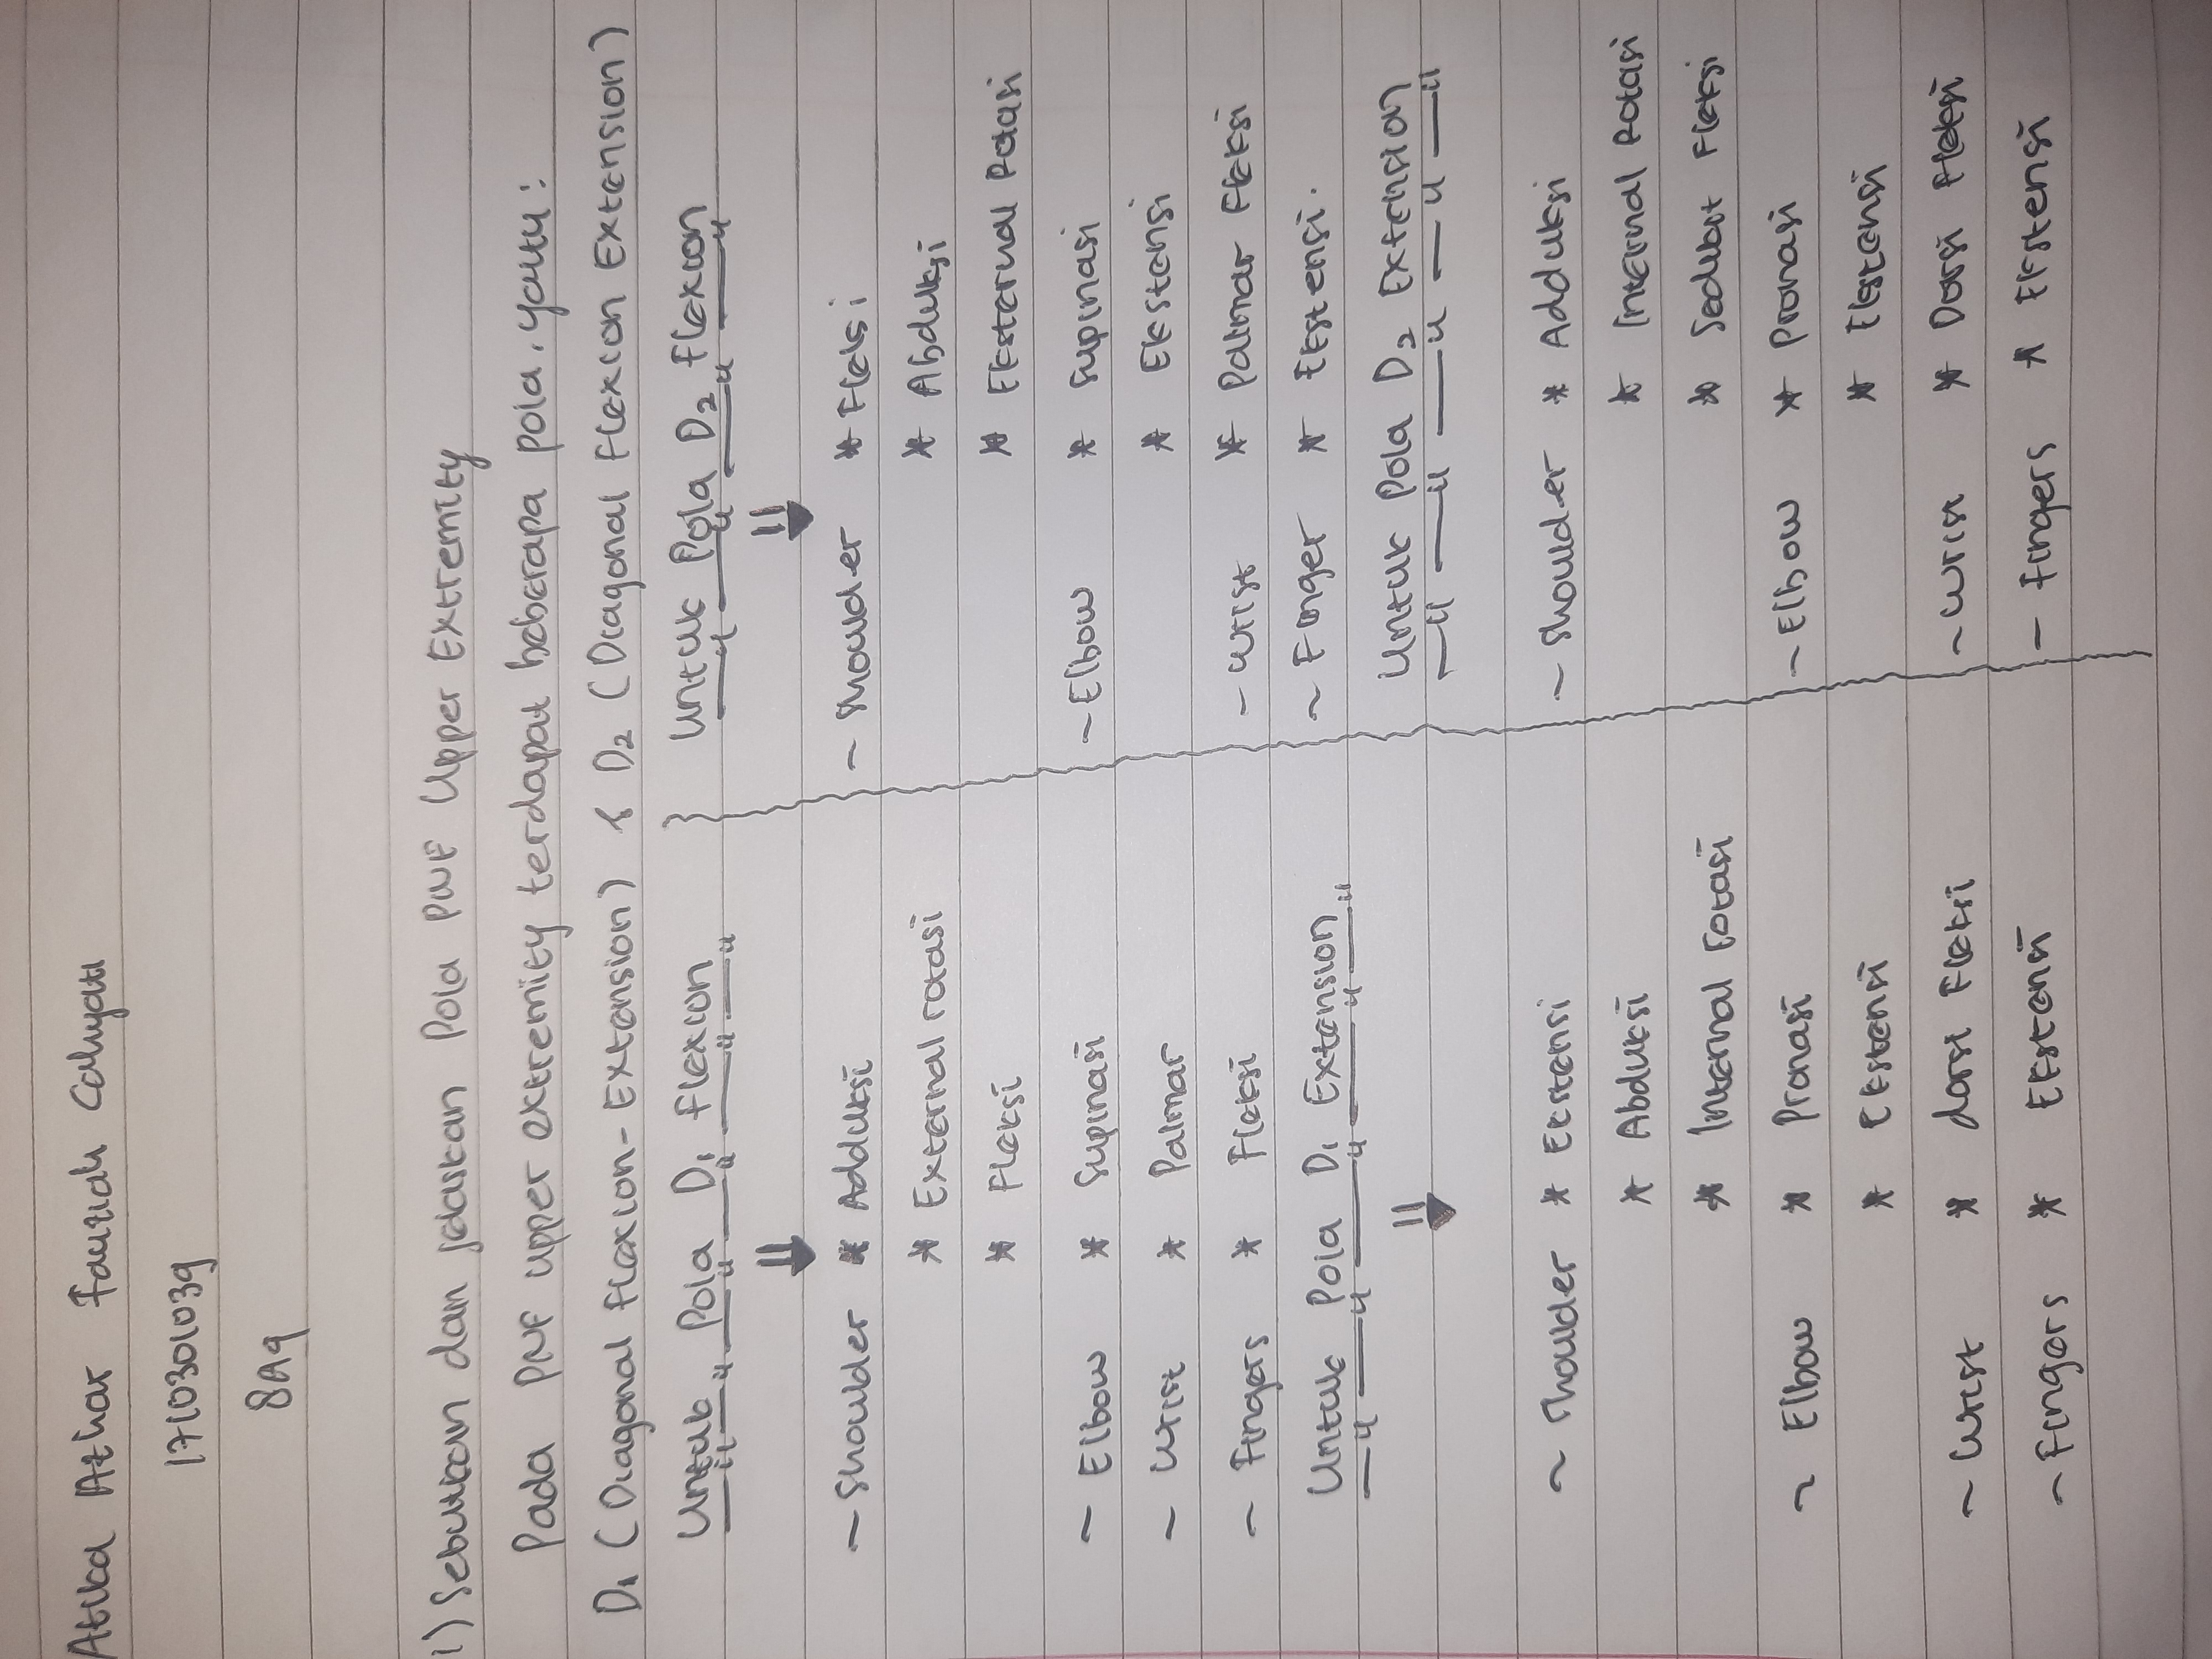 Atika Azhar Fauziah Cahyati
1710301039
8A9
1) Sebutkan dan jelaskan Pola PNF Upper Extremity
Pada PNF upper extremity terdapat beberapa pola, yaitu :
D1 (Diagonal flexion-Extension) & D2 (Diagonal Flexion Extension)
Untuk Pola D1 flexion
~ Shoulder * Adduksi
* External rotasi
* Fleksi
~ Elbow * Supinasi
~ Wrist * Palmar
~ Fingers * Fleksi
Untuk Pola D1 Extension
~ Shoulder * Ekstensi
* Abduksi
* Internal rotasi
~ Elbow * Pronasi
* Ekstensi
~ Wrist * dorsi Fleksi
~ Fingers * Ekstensi
Untuk Pola D2 flexion
~ Shoulder * Fleksi
* Abduksi
* Eksternal Rotasi
~ Elbow * Supinasi
* Ekstensi
~ Wrist * Palmar Fleksi
~ Finger * Ekstensi.
Untuk Pola D2 Extension
~ Shoulder * Adduksi
* Internal Rotasi
* Sedikit Fleksi
~ Elbow * Pronasi
* Ekstensi
~ Wrist * Dorsi Fleksi
~ Fingers * Ekstensi